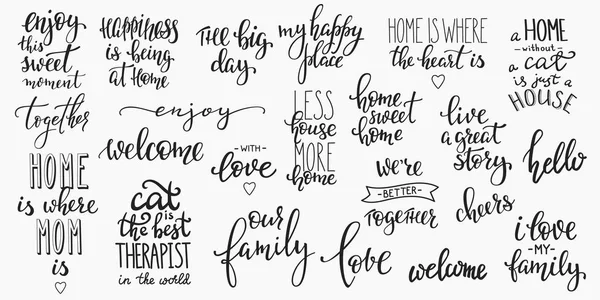 enjoy
this
sweet
moment
Happiness
is being
at Home
THE big
day
my happy
place
HOME IS WHERE
the heart is
a HOME
- without -
a cat
is just a
HOUSE
together
enjoy
LESS
house
MORE
home
home
sweet
home
live
a great
story
hello
welcome
- WITH -
love
we're
- BETTER -
TOGETHER
cheers
HOME
is where
MOM
is
cat
is
the best
THERAPIST
in the world
our
family
love
welcome
i love
- MY -
family